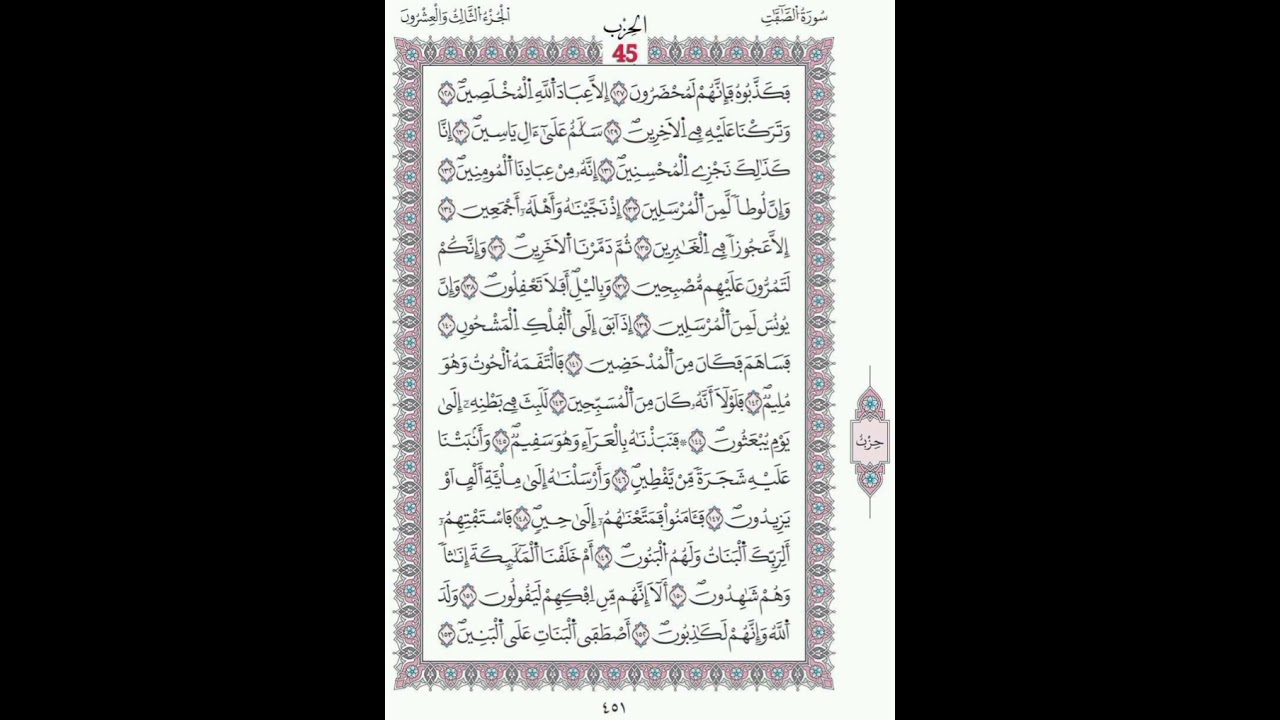 سُورَةُ الصَّٰٓفَّٰتِ
الْجُزْءُ الثَّالِثُ وَالْعِشْرُونَ
الحِزْب
45
فَكَذَّبُوهُ فَإِنَّهُمْ لَمُحْضَرُونَ ١٢٧ إِلَّا عِبَادَ اَللَّهِ اِلْمُخْلَصِينَ ١٢٨
وَتَرَكْنَا عَلَيْهِ فِے اِلَاخِرِينَ ١٢٩ سَلَٰمٌ عَلَىٰٓ ءَالِ يَاسِينَ ١٣٠ إِنَّا
كَذَٰلِكَ نَجْزِے اِلْمُحْسِنِينَ ١٣١ إِنَّهُۥ مِنْ عِبَادِنَا اَلْمُومِنِينَ ١٣٢
وَإِنَّ لُوطاٗ لَّمِنَ اَلْمُرْسَلِينَ ١٣٣ إِذْ نَجَّيْنَٰهُ وَأَهْلَهُۥٓ أَجْمَعِينَ ١٣٤
إِلَّا عَجُوزاٗ فِے اِلْغَٰبِرِينَ ١٣٥ ثُمَّ دَمَّرْنَا اَلَاخَرِينَ ١٣٦ وَإِنَّكُمْ
لَتَمُرُّونَ عَلَيْهِم مُّصْبِحِينَ ١٣٧ وَبِاليْلِ أَفَلَا تَعْقِلُونَ ١٣٨ وَإِنَّ
يُونُسَ لَمِنَ اَلْمُرْسَلِينَ ١٣٩ إِذَ اَبَقَ إِلَى اَلْفُلْكِ اِلْمَشْحُونِ ١٤٠
فَسَاهَمَ فَكَانَ مِنَ اَلْمُدْحَضِينَ ١٤١ فَالْتَقَمَهُ اُلْحُوتُ وَهُوَ
مُلِيمٌ ١٤٢ فَلَوْلَآ أَنَّهُۥ كَانَ مِنَ اَلْمُسَبِّحِينَ ١٤٣ لَلَبِثَ فِے بَطْنِهِۦٓ إِلَىٰ
يَوْمِ يُبْعَثُونَ ١٤٤ ۞ فَنَبَذْنَٰهُ بِالْعَرَآءِ وَهُوَ سَقِيمٌ ١٤٥ وَأَنۢبَتْنَا
عَلَيْهِ شَجَرَةٗ مِّنْ يَّقْطِينٖ ١٤٦ وَأَرْسَلْنَٰهُ إِلَىٰ مِاْئَةِ أَلْفٍ اَوْ
يَزِيدُونَ ١٤٧ فَـَٔامَنُواْ فَمَتَّعْنَٰهُمُۥٓ إِلَىٰ حِينٖ ١٤٨ فَاسْتَفْتِهِمُۥٓ
أَلِرَبِّكَ اَلْبَنَاتُ وَلَهُمُ اُلْبَنُونَ ١٤٩ أَمْ خَلَقْنَا اَلْمَلَٰٓئِكَةَ إِنَٰثاٗ
وَهُمْ شَٰهِدُونَ ١٥٠ أَلَآ إِنَّهُم مِّنِ اِفْكِهِمْ لَيَقُولُونَ ١٥١ وَلَدَ
اَللَّهُ وَإِنَّهُمْ لَكَٰذِبُونَ ١٥٢ أَصْطَفَى اَلْبَنَاتِ عَلَى اَلْبَنِينَ ١٥٣
حِزْبٌ
٤٥١